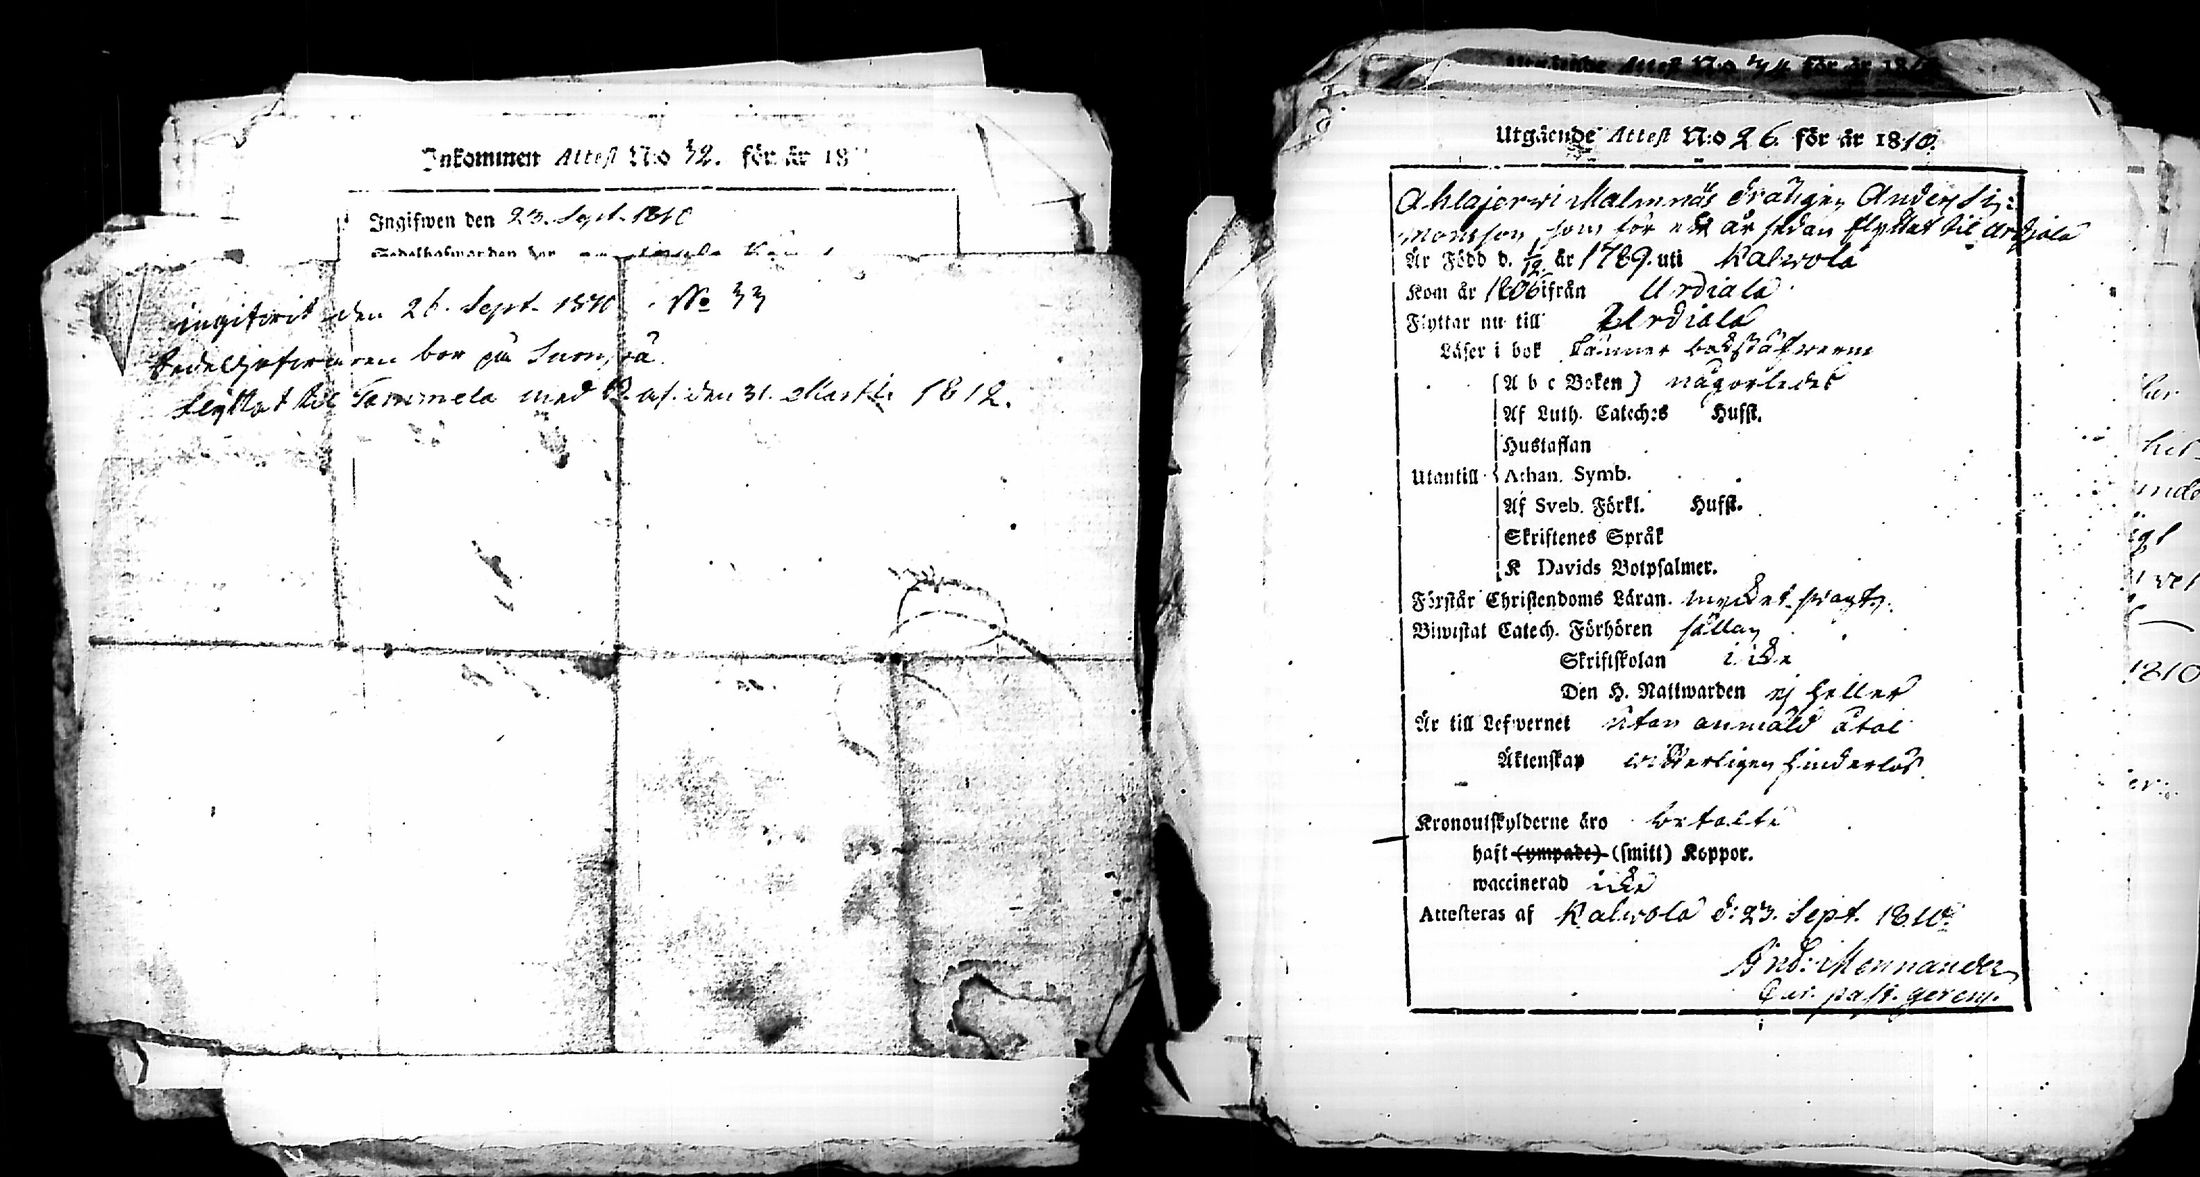 Inkommen Attest N:o 32. för år 18
Ingifwen den 23. Sept. 1810
Sedelhafwarden bor
ingifwit den 26. Sept. 1810. No 33
Sedelhafwaren bor på
flyttat til Tammela med af den 31. Martii 1812.
Utgående Attest N:o 34 för år 1810
Utgående Attest N:o 26. för år 1810.
Ahlajerwi Malmnäs drängen Anders Si:
monsson, som för ett år sedan flyttat til Urdiala
Är Född d. 1/12 år 1789. uti Kalwola
Kom år 1806 ifrån Urdiala
Flyttar nu till Urdiala
Läser i bok känner bokstäfwerne
(A b c Boken) någorledes
Af Luth. Catech:s Hufst.
Hustaflan
Utantill Athan. Symb.
Af Sveb. Förkl. Hufst.
Skriftenes Språk
K Davids Botpsalmer.
Förstår Christendoms Läran. mycket swagt.
Biwistat Catech. Förhören sällan
Skriftskolan icke
Den H. Nattwarden ej heller
Är till Lefwernet utan anmäld åtal
Äktenskap witterligen hinderlös.
Kronoutskylderne äro betalte
haft (ympade) (smitt) Koppor.
waccinerad icke
Attesteras af Kalwola d: 23. Sept. 1810.
And: Mennander
Cur. past. gerens.
1810